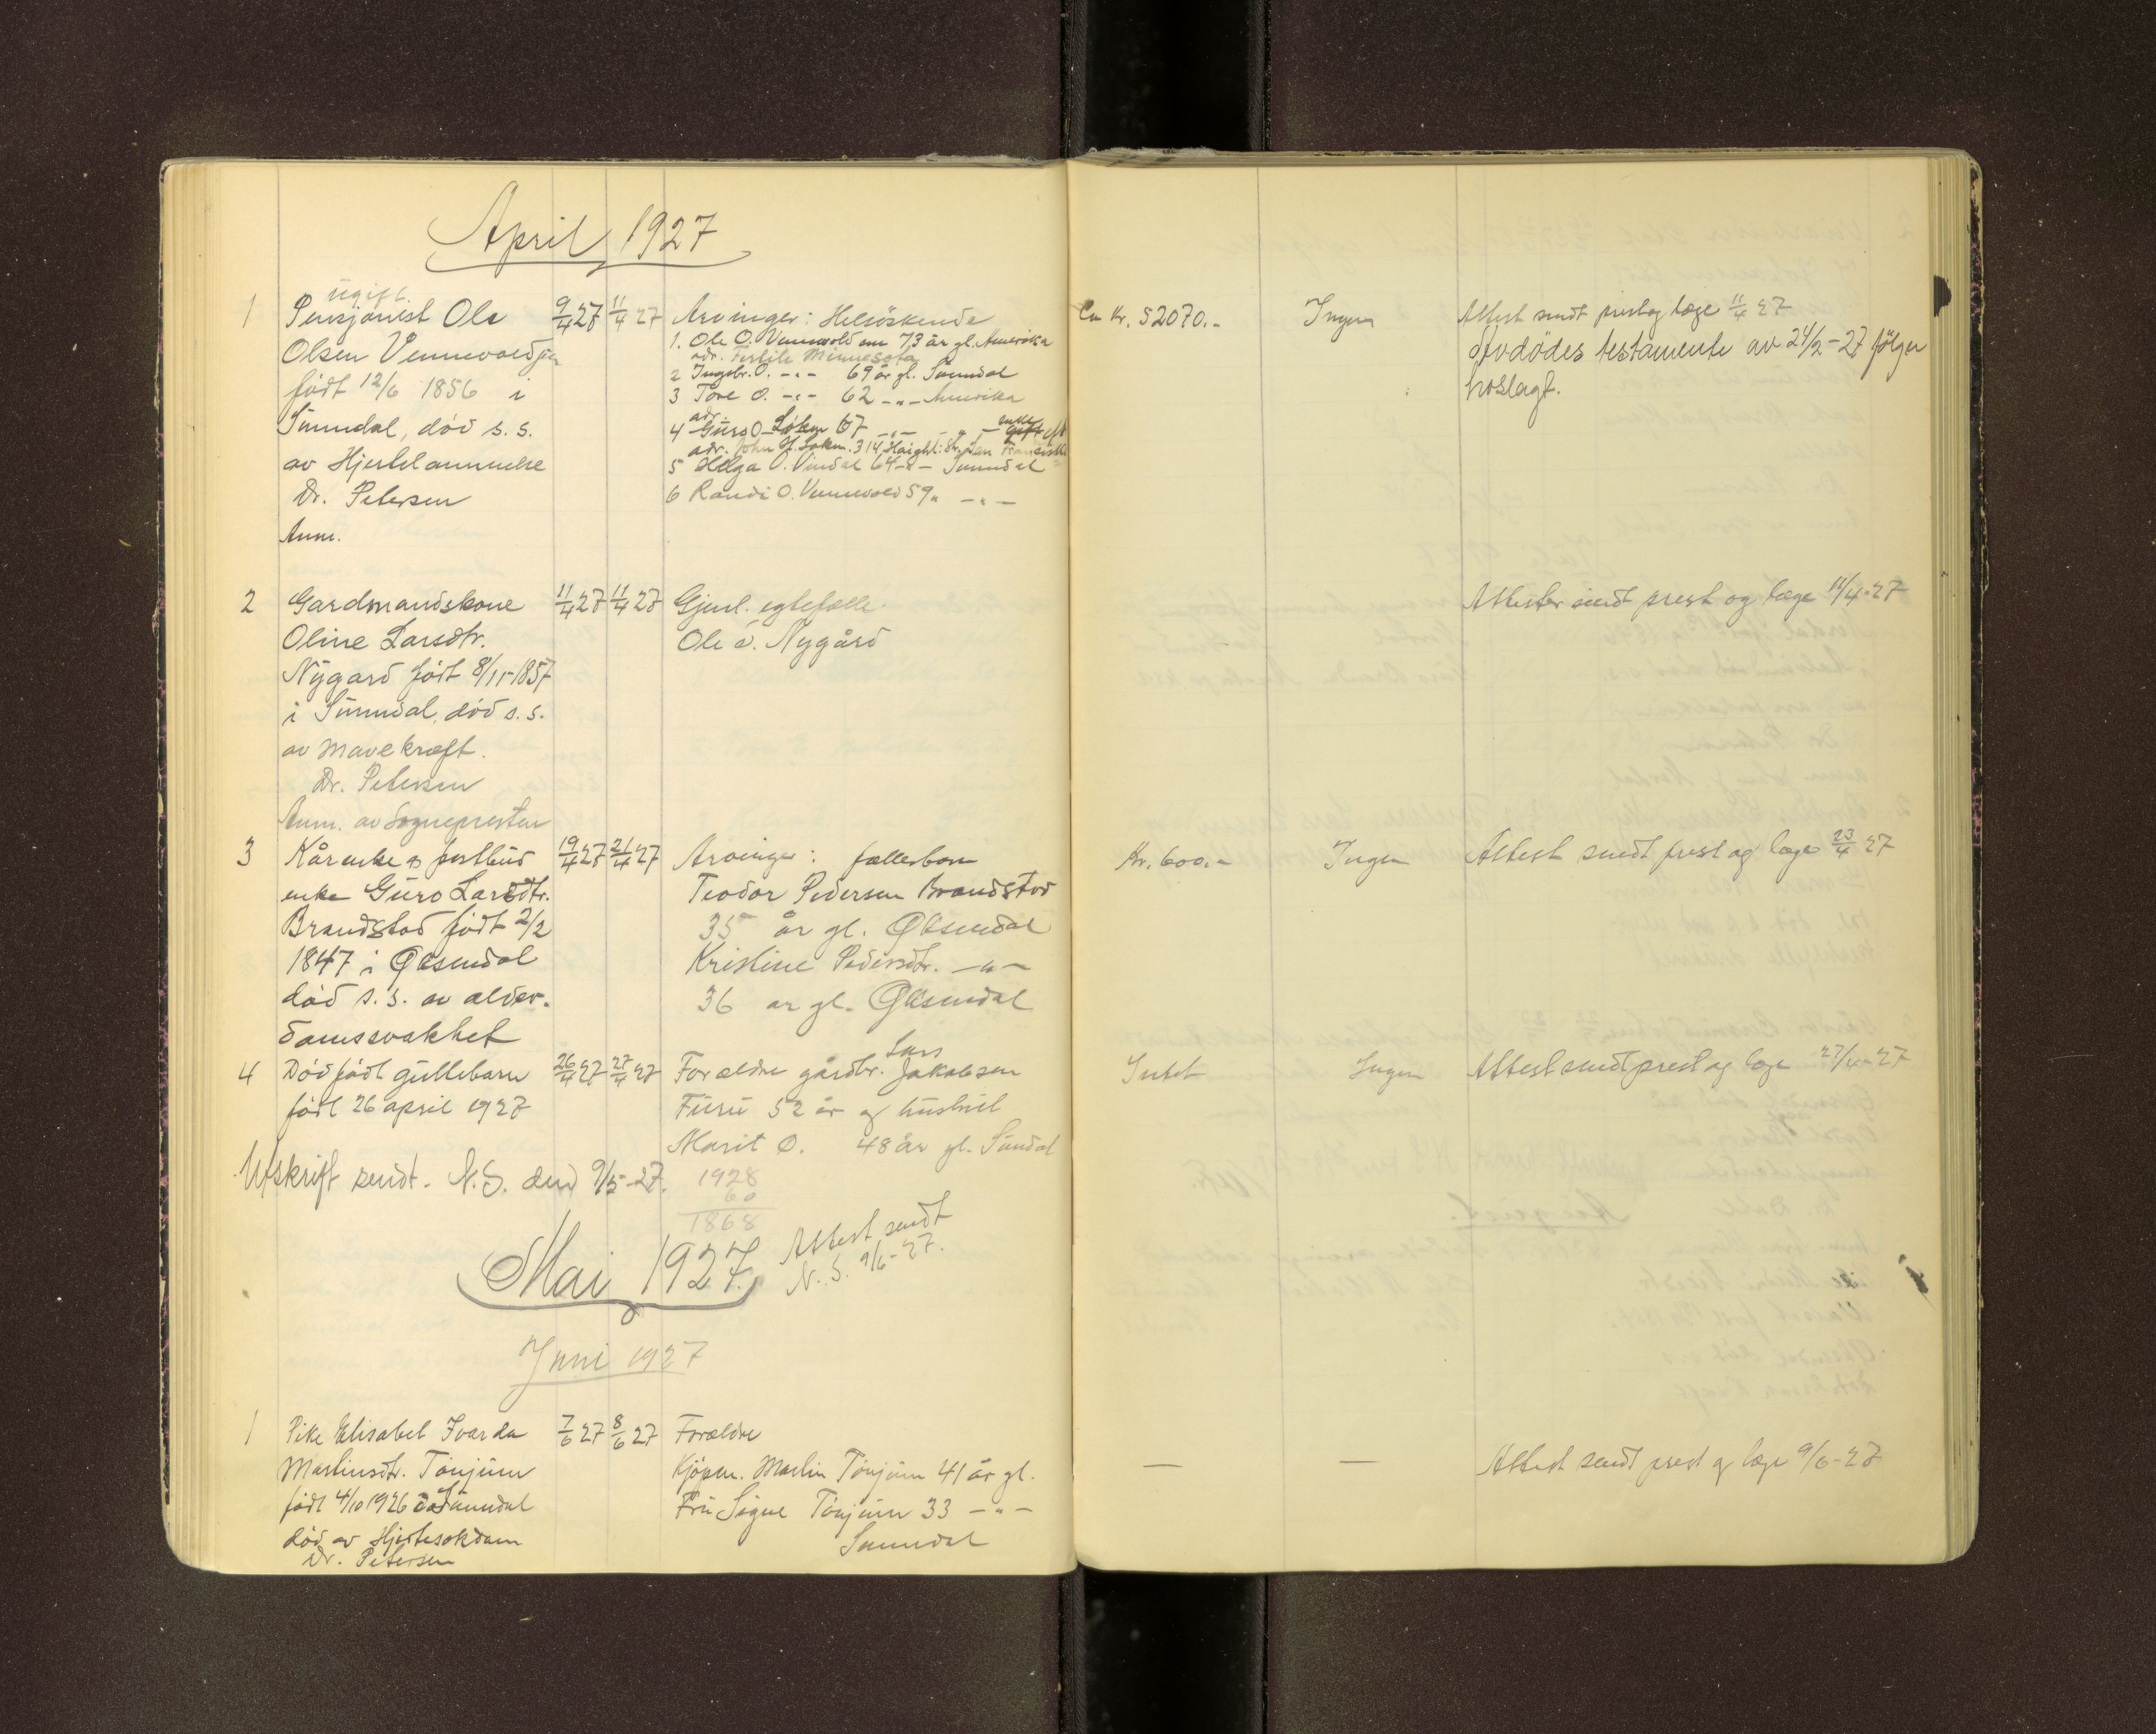 April 1927
ugift.
1 Pensjonist Ole 9/4 27 11/4 27 Arvinger: Helsöskende Ca Kr. 52070.- Ingen Attest sendt prest og læge 11/4 27
Olsen Vennevold
1. Ole O. Vennevold 73 år gl. Amerika
adr. Fertile Minnesota
avdödes testamente av 24/2-27 fölger
født 12/6 1856 i
2 Ingebr. O. -"- 69 år gl. Sunndal
3 Tore O. -"- 62 -"- Amerika
hoslagt.
Sunndal, død s. s.
adr.
4 Guro O. Løken 67 -"- -"- enke
av Hjertelammelse
adr. John H. Løken. 314 Haight: Str. San Francisko
5 Helga O. Vindal 64 -"- Sunndal
Dr. Petersen
6 Randi O. Vennevold 59 " -"-
Anm.
2 Gardmandskone 11/4 27 11/4 27 Gjenl. egtefælle Attester sendt prest og læge 11/4-27
Oline Larsdtr. Ole O. Nygård
Nygard født 8/11-1857
i Sunndal, død s. s.
av mavekræft.
Dr. Petersen
Anm. av Sognepresten
3 Kårenke 19/4 27 21/4 27 Arvinger: fællesbarn Kr. 600.- Ingen Attest sendt prest og læge 23/4 27
enke Guro Larsdtr. Teodor Pedersen Brandstad
Brandstad født 2/2 35 år gl. Øksendal
1847 i Øksendal Kristine Pedersdtr. -"-
død s. s. av alder- 36 ar gl. Øksendal
damssvakhet
Lars
4 Dødfødt guttebarn 26/4 27 27/4 27 Forældre gårdbr. Jakobsen Intet Ingen Attest sendt prest og læge 27/4-27
født 26 april 1927 Furu 52 år og hustru
Marit O. 48 år gl. Sundal
Utskrift sendt. N.S. den 9/5-27. 1928
60
1868
Mai 1927. Attest sendt
N.S. 9/6-27.
Juni 1927
1 Pike Elisabet Ivarda 7/6 27 8/6 27 Forældre
Martinsdtr. Tönjum Kjöpm. Martin Tönjum 41 år gl. — — Attest sendt prest og læge 9/6-27
født 4/10 1926 Sunndal Fru Signe Tönjum 33 -"-
død av Hjertesvkdom Sunndal
Dr. Petersen